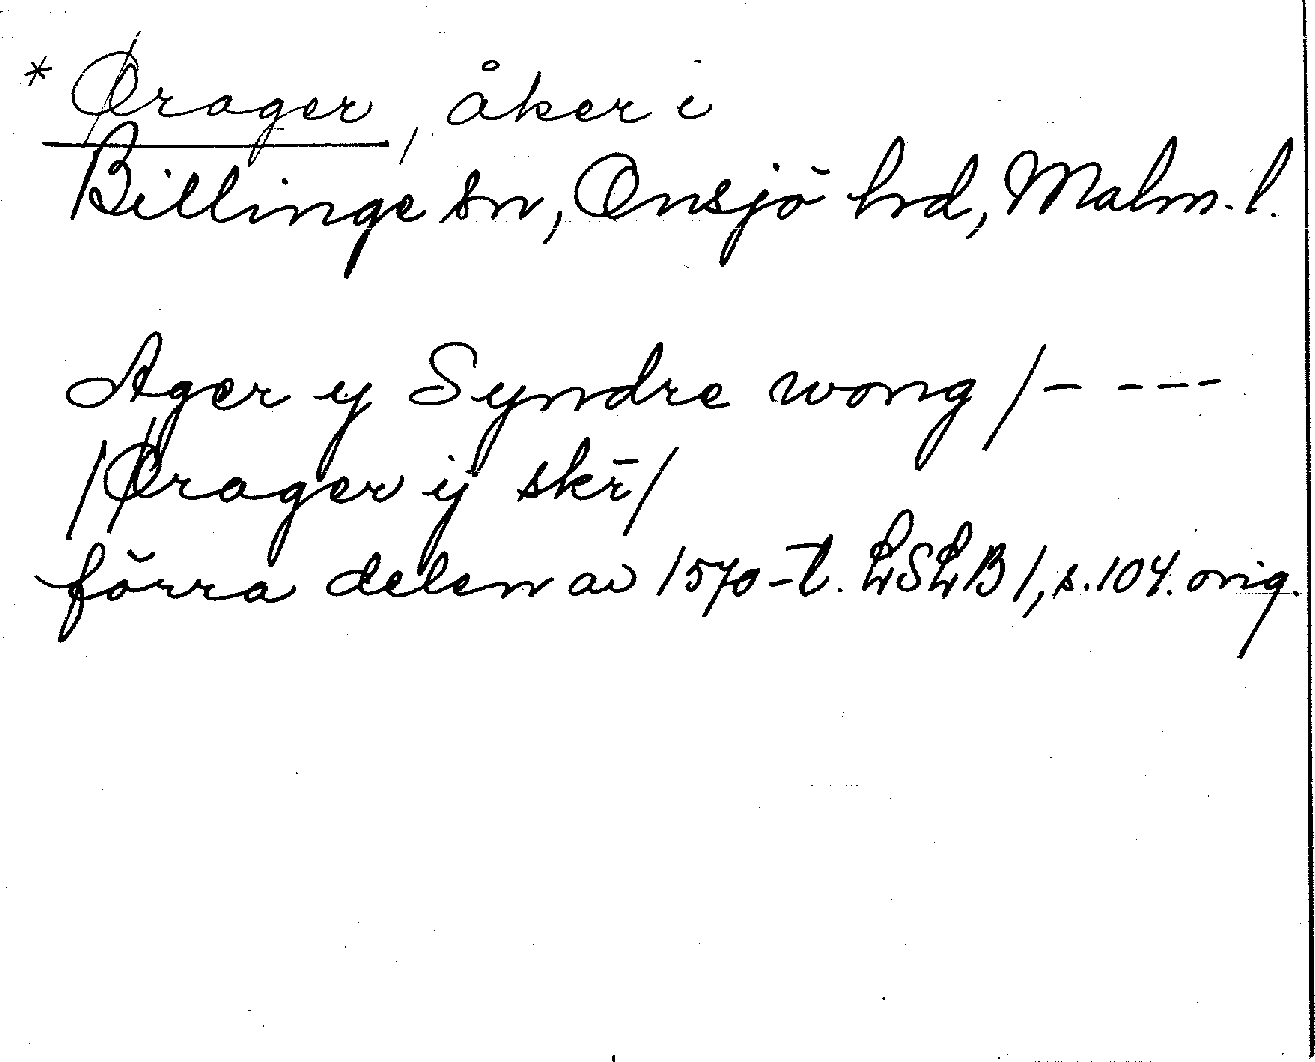 * Ørager, åker i
Billinge sn, Onsjö hrd, Malm. l.
Ager y Syndre wong /- ---
/Ørager ij skr̄/
förra delen av 1570-t. LSLB 1, s. 104. orig.